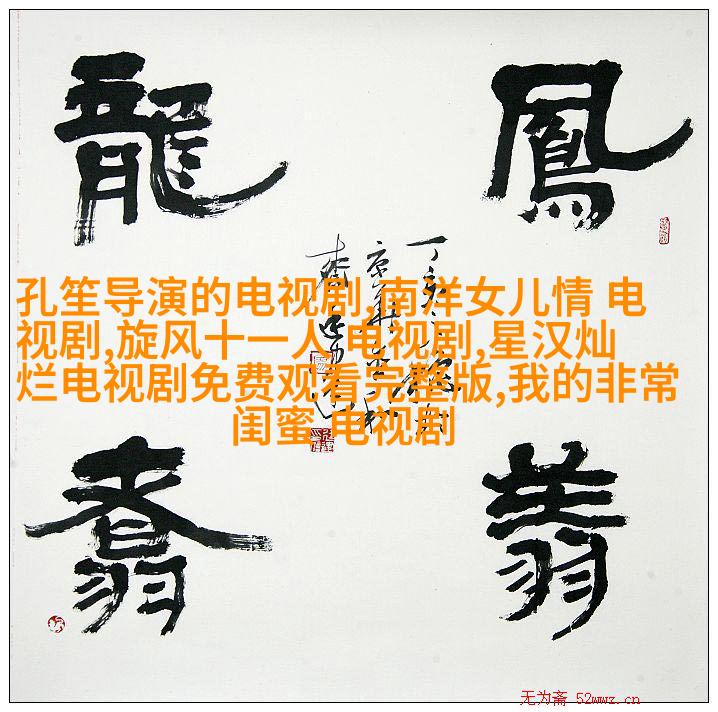 鳳翔
龍翥
孔笙导演的电视剧,南洋女儿情 电
视剧,旋风十一人 电视剧,星汉灿
烂电视剧免费观看完整版,我的非常
闺蜜 电视剧
无为斋 52wwz.cn